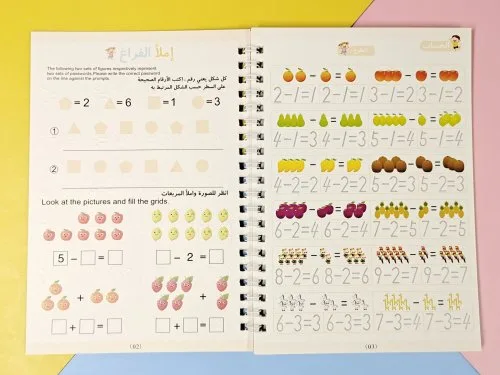 إملأ الفراغ
The following two sets of figures respectively represent
two sets of passwords,Please write the correct password
on the line against the prompts.
كل شكل يعني رقم . اكتب الأرقام الصحيحة
على السطر حسب الشكل المرتبط به
=2 =6 =1 =3
①
②
انظر للصورة واملأ المربعات
Look at the pictures and fill the grids.
5 - =
- 2 =
+
+
+ =
+ =
(02)
- =
2-1=1 2-1=1
- =
3-1=2 3-1=2
- =
4-1=3 4-1=3
- =
5-1=4 5-1=4
- =
4-2=2 4-2=2
- =
5-2=3 5-2=3
- =
6-2=4 6-2=4
- =
7-2=5 7-2=5
- =
8-2=6 8-2=6
- =
9-2=7 9-2=7
- =
6-3=3 6-3=3
- =
7-3=4 7-3=4
(03)